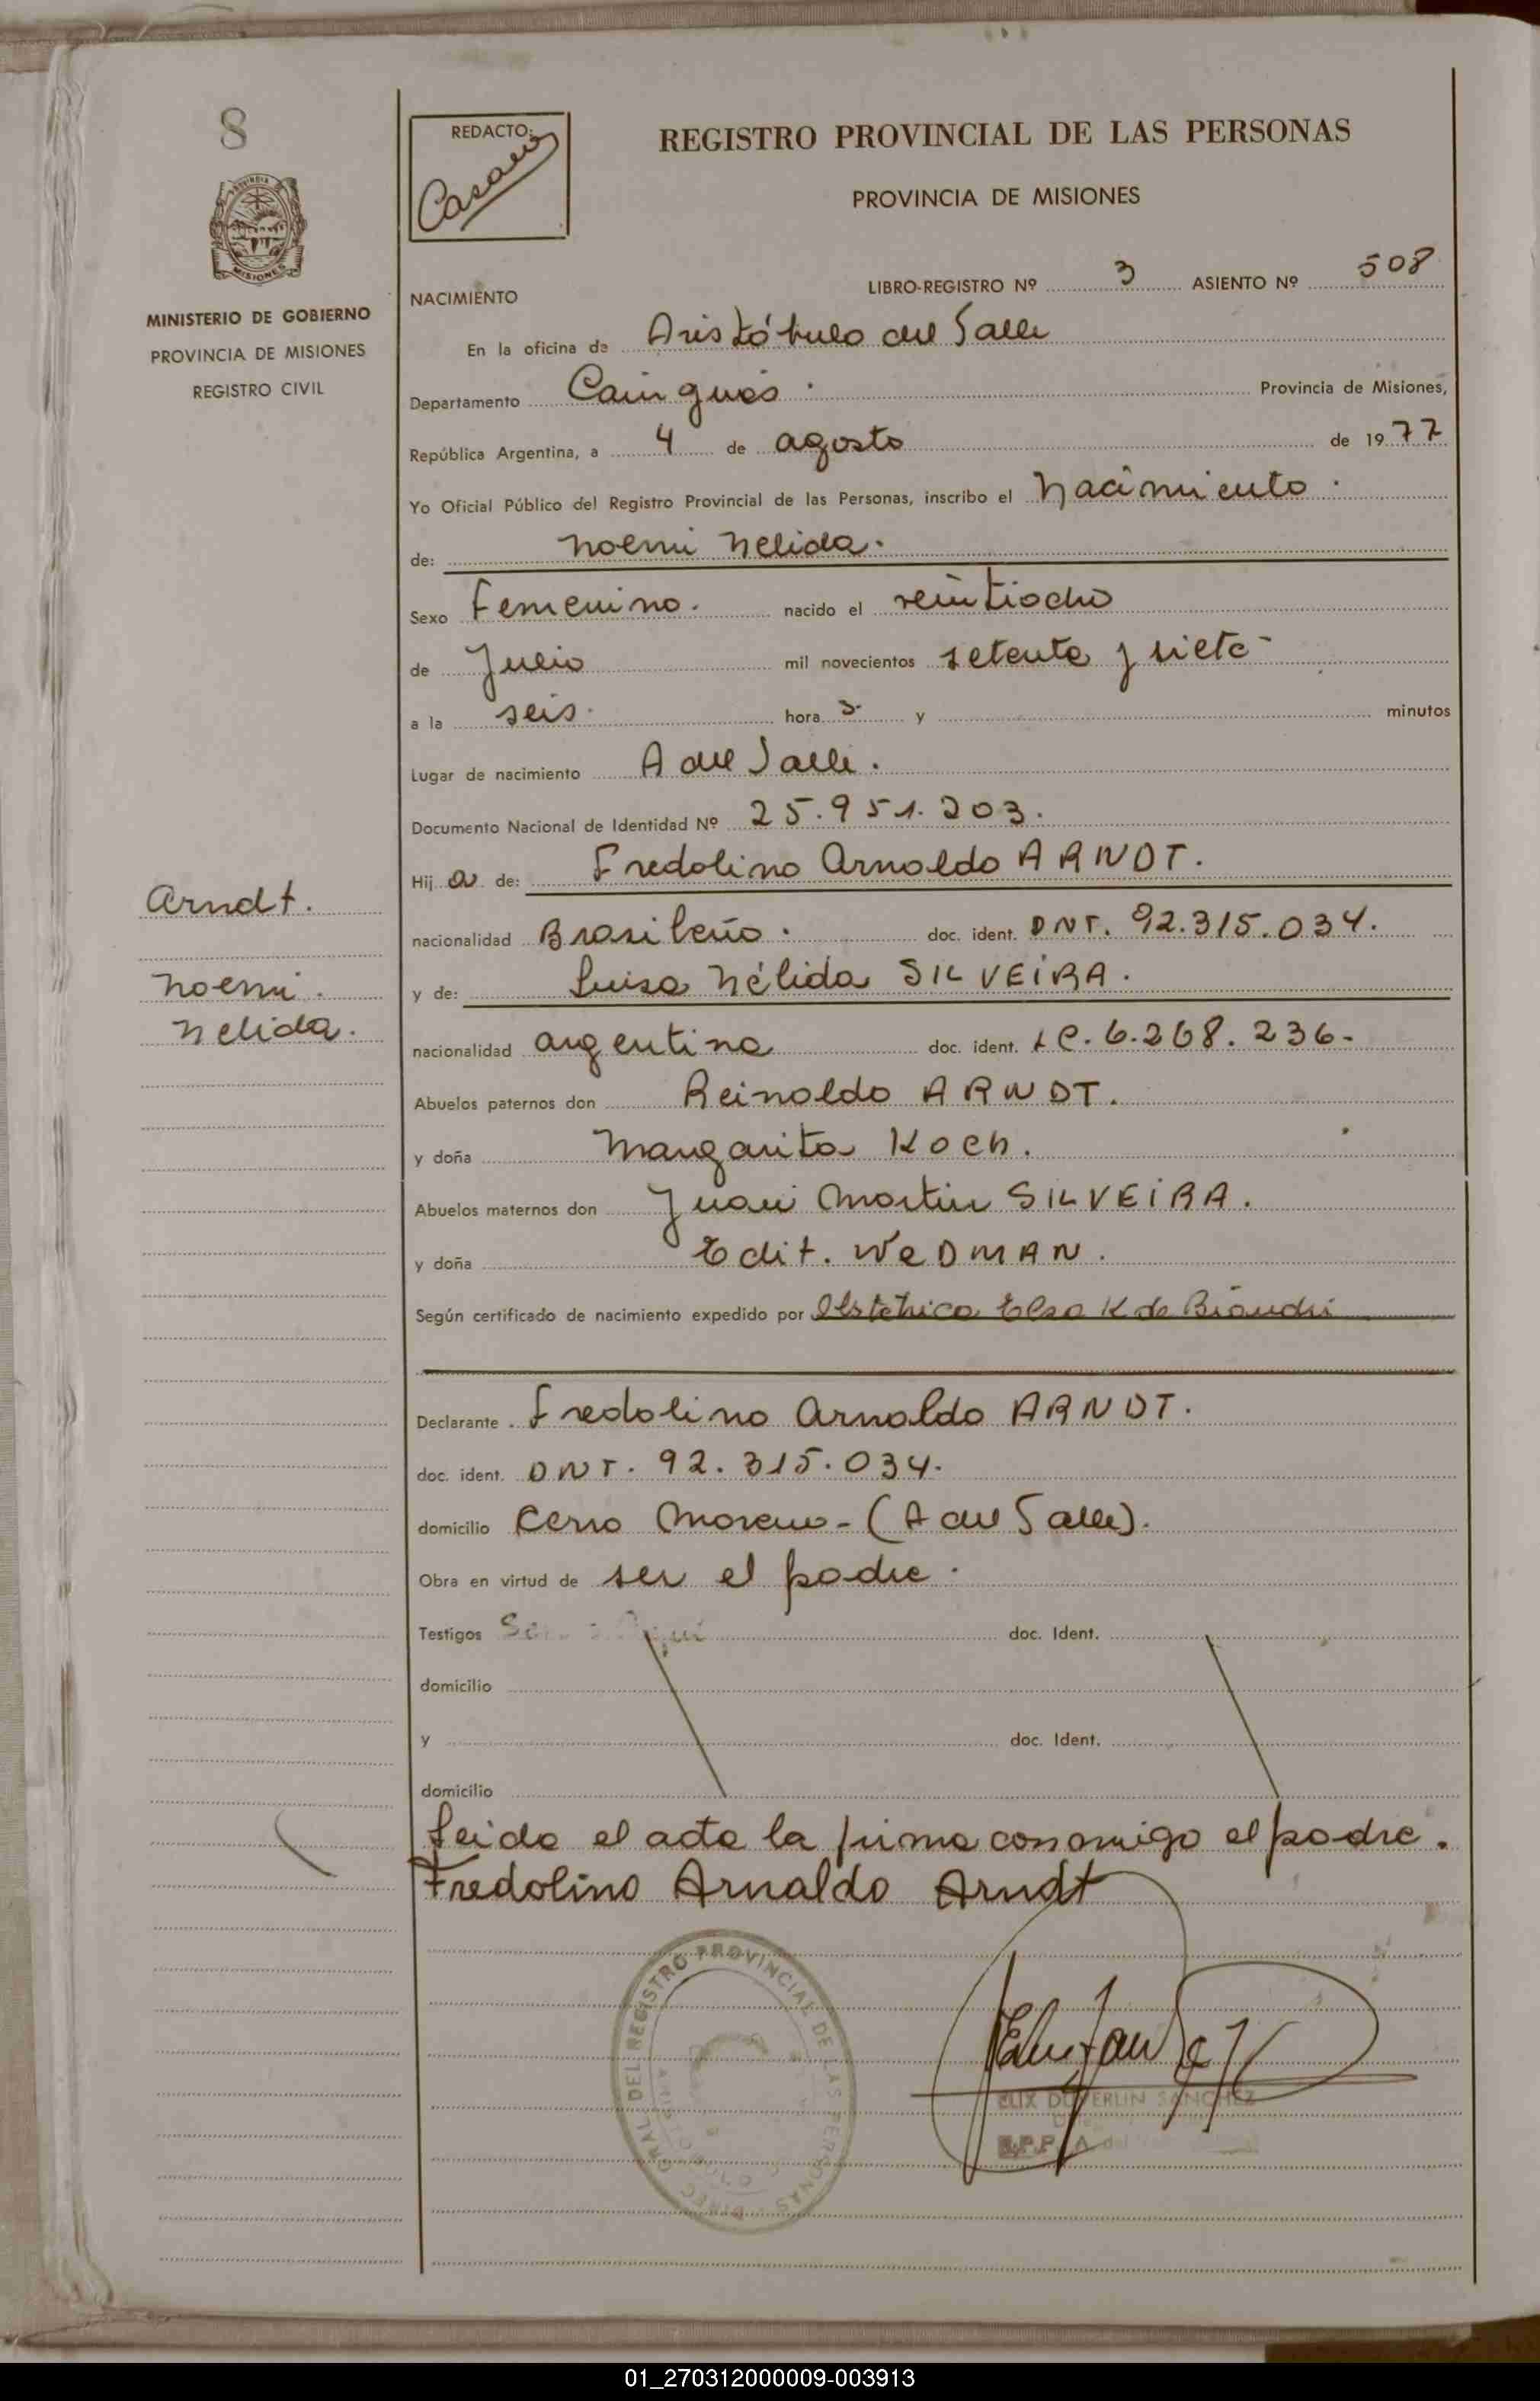 8
REDACTO:
REGISTRO PROVINCIAL DE LAS PERSONAS
PROVINCIA DE MISIONES
MISIONES
MINISTERIO DE GOBIERNO
PROVINCIA DE MISIONES
REGISTRO CIVIL
LIBRO-REGISTRO Nº 3 ASIENTO Nº 508
NACIMIENTO
En la oficina de Aristóbulo del Valle
Departamento Cainguás. Provincia de Misiones,
República Argentina, a 4 de agosto de 1977
Yo Oficial Público del Registro Provincial de las Personas, inscribo el Nacimiento.
de: Noemi Nelida.
Sexo Femenino. nacido el veintiocho
de Julio mil novecientos setenta y siete-
a la seis. hora s y minutos
Lugar de nacimiento A del Valle.
Documento Nacional de Identidad Nº 25.951.203.
Hij a de: Fredolino Arnoldo ARNDT.
Arndt.
nacionalidad Brasileño. doc. ident. DNI. 92.315.034.
Noemi.
y de: Luisa Nélida SILVEIRA.
Nelida.
nacionalidad argentina doc. ident. LC. 6.268.236-
Abuelos paternos don Reinoldo ARNDT.
y doña Margarita Koch.
Abuelos maternos don Juan Martin SILVEIRA.
y doña Edit. WeDMAN.
Según certificado de nacimiento expedido por Obstetrica Elsa K de Bianchi
Declarante. Fredolino Arnoldo ARNDT.
doc. ident. DNI. 92.315.034.
domicilio Cerro Moreno-(A del Valle).
Obra en virtud de ser el padre.
Testigos doc. Ident.
domicilio
y doc. Ident.
domicilio
Leida el acta la firma conmigo el padre.
Fredolino Arnaldo Arndt
DIREC. GRAL. DEL REGISTRO PROVINCIAL DE LAS PERSONAS
DUVERLIN SANCHEZ
01_270312000009-003913